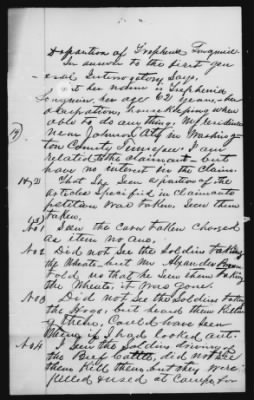 Deposition of Trephena Longmire
In answer to the first gen-
eral Interrogatory Says.
her name is Trephenia
Longmire, her age 62 years, her
occupations, housekeeping when
able to do any thing. My residence
near Johnson City in Washing-
ton County Tennessee. I am
related to the claimant but
have no interest in the claim
That She Seen a portion of the
articles Specified in Claimants
petition was taken. Seen them
taken.
No 1 Seen the Corn taken Charged
as item no one.
No 2 Did not See the Soldiers taking
the Wheat, but Mr Alexander
told us that he Seen them taking
the Wheat, it was gone.
No 3 Did not See the Soldiers taking
the Hogs, but heard them Killing
them, Could have Seen
them if I had looked out.
No 4 I Seen the Soldiers driving
the Beef Cattle, did not See
them Kill them, but they were
Killed & used at Camp, for